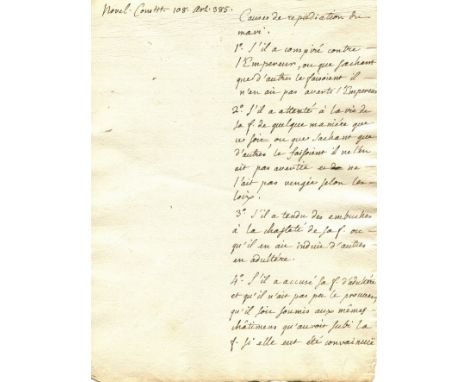 Novel. Constit. 108. Art. 385.
Causes de repudiation du
mari.
1°. S'il a conspiré contre
l'Empereur, ou que sachant
que d'autres le faisoient il
n'en ait pas averti l'Empereur
2°. S'il a attenté à la vie de
sa f. de quelque manière que
ce soit ou que sachant que
d'autres le faisoient il ne l'en
ait pas avertie et ne
l'ait pas vengée selon les
loix.
3°. S'il a tendu des embuches
à la chasteté de sa f. ou
qu'il en ait induit d'autres
en adultère.
4°. S'il a accusé sa f. d'adultère
et qu'il n'ait pas pu le prouver,
qu'il soit soumis aux mêmes
châtimens qu'auroit subi la
f. si elle eut été convaincue